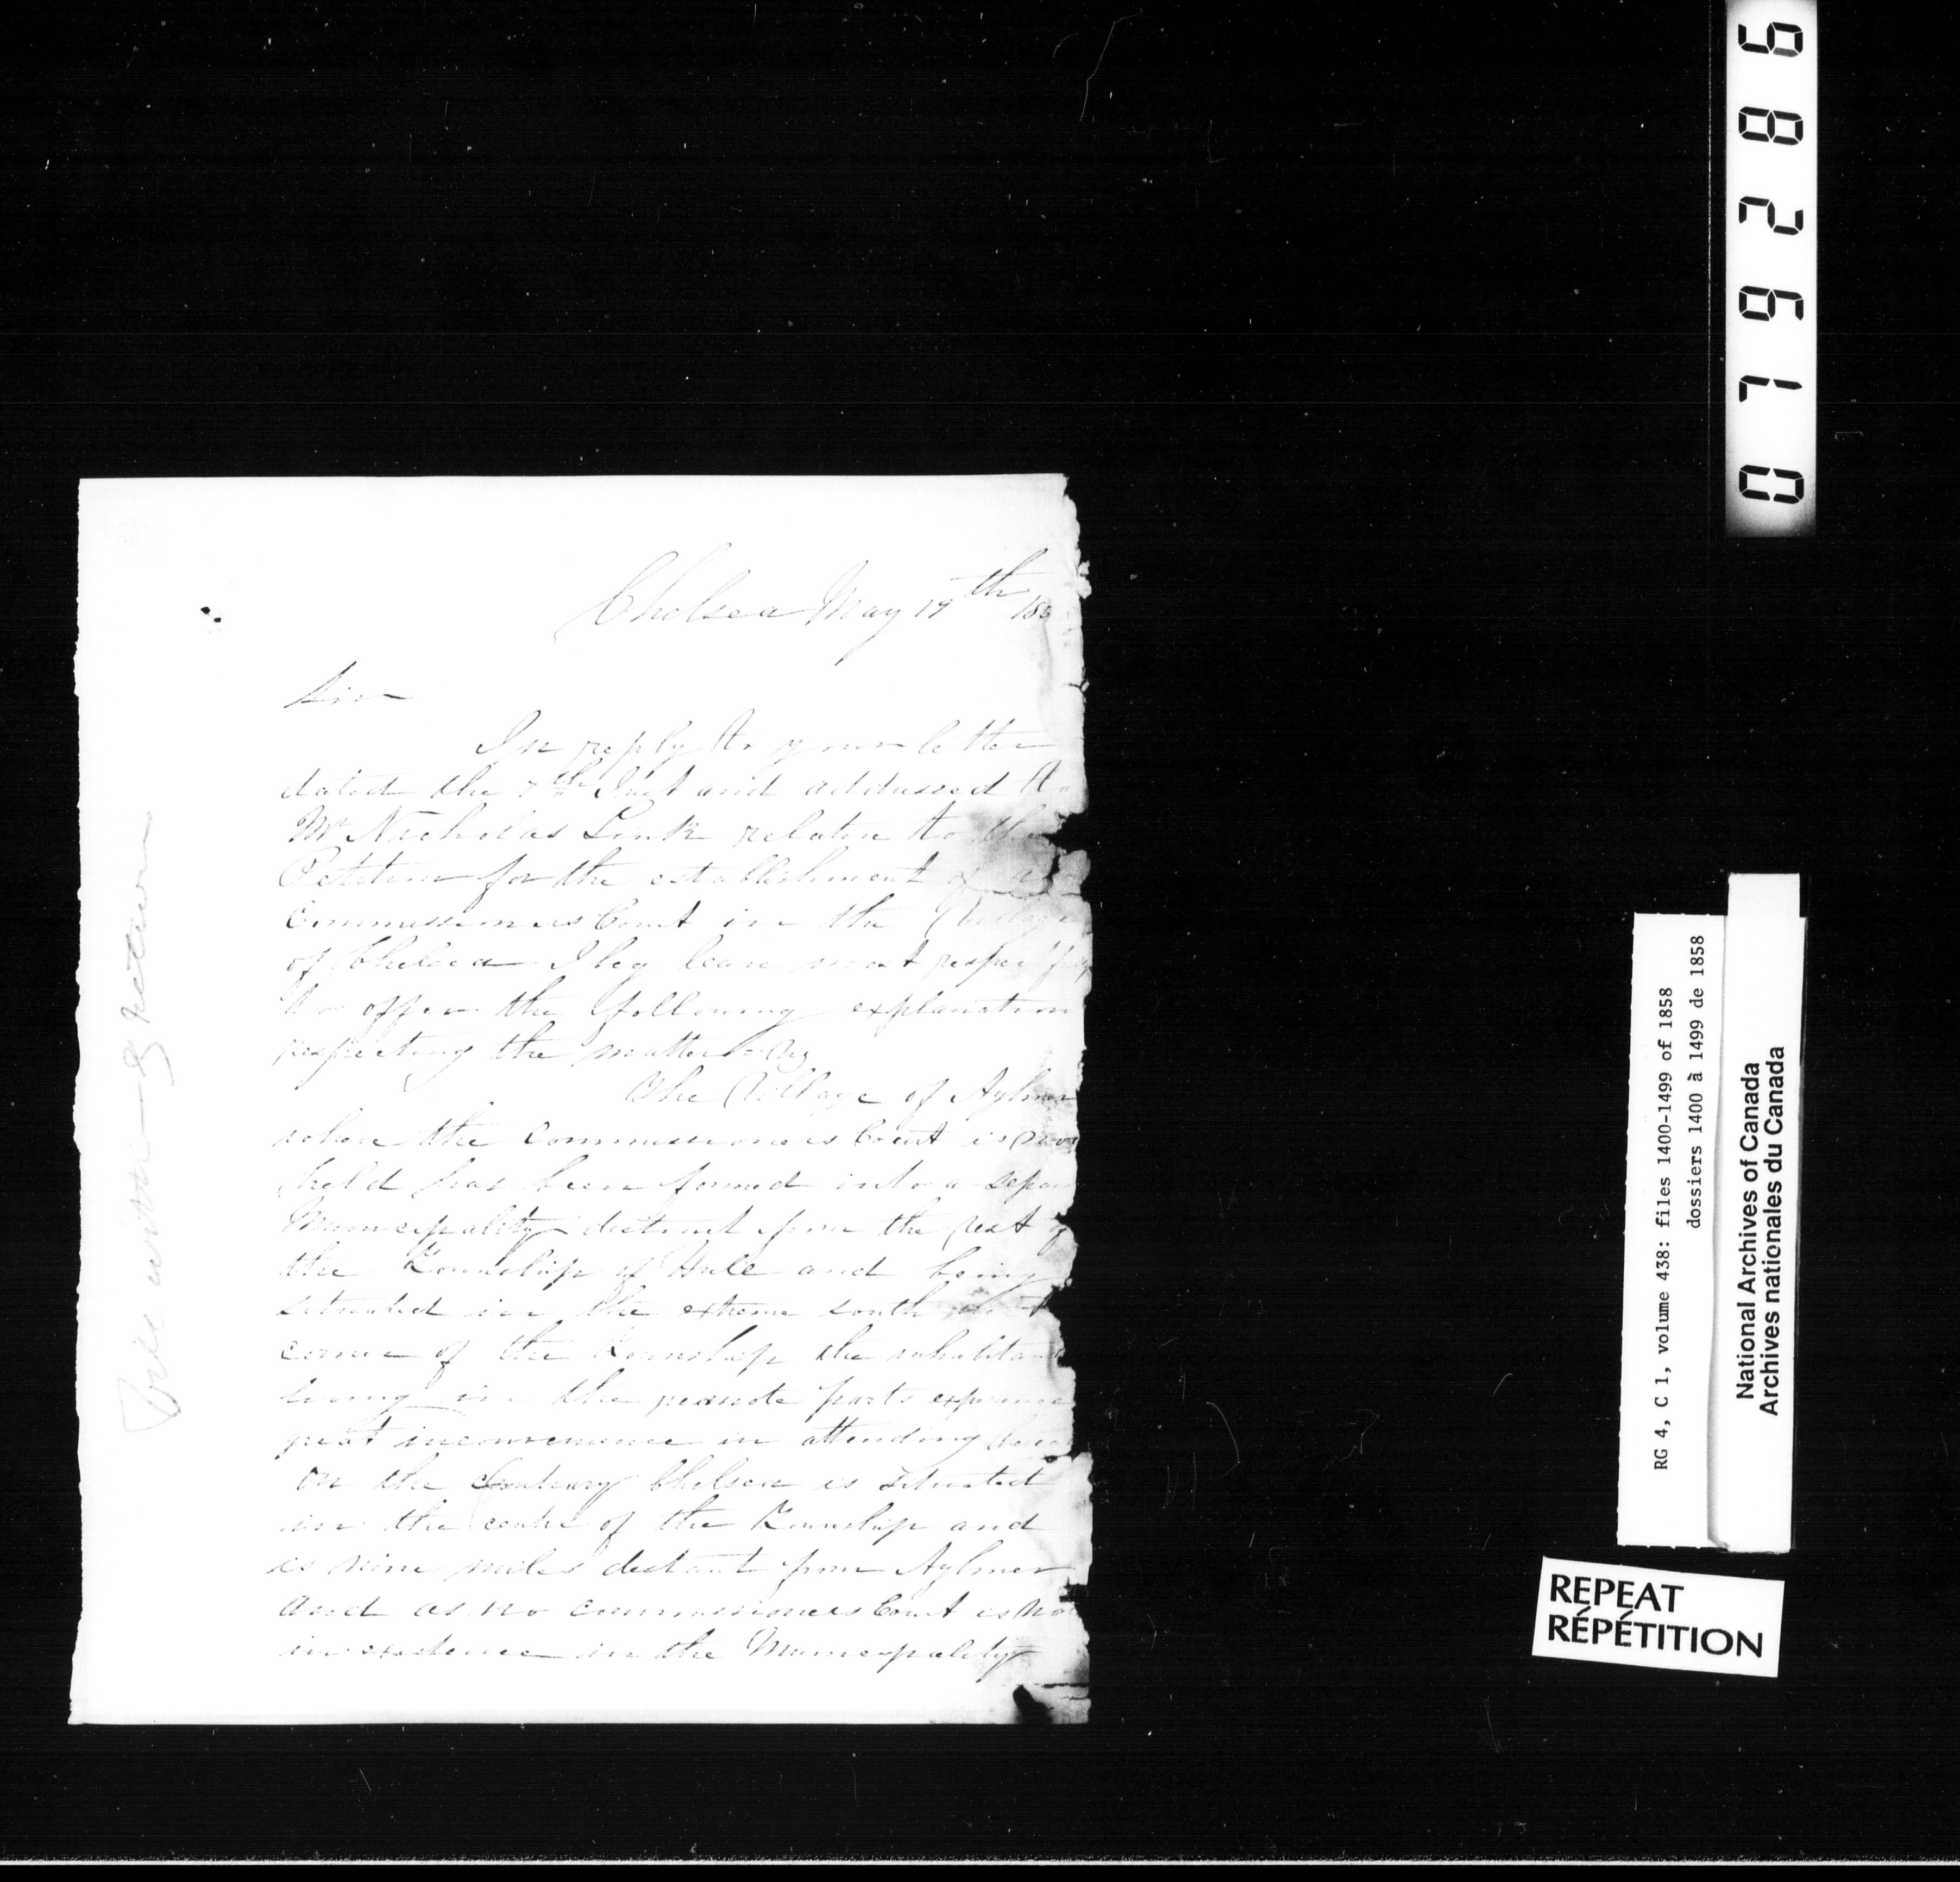 Chelsea May 19th 185
Sir
In reply to your letter
dated the 7th Inst and addressed to
Mr Nicholas Sink relative to the
Petition for the establishment of a
Commissioners Court in the Village
of Chelsea I beg leave most respectfully
to offer the following explanation
respecting the matter - viz
The Village of Aylmer
where the Commissioners Court is now
held has been formed into a separ
Municipality distinct from the rest of
the Township of Hull and being
situated in the extreme south west
corner of the Township the inhabitants
living in the remote parts experience
great inconvenience in attending
on the Contrary Chelsea is situated
in the centre of the Township and
is nine miles distant from Aylmer
and as no commissioners Court is now
in existence in the Municipality
079286
RG 4, C 1, volume 438: files 1400-1499 of 1858
dossiers 1400 à 1499 de 1858
National Archives of Canada
Archives nationales du Canada
REPEAT
RÉPÉTITION